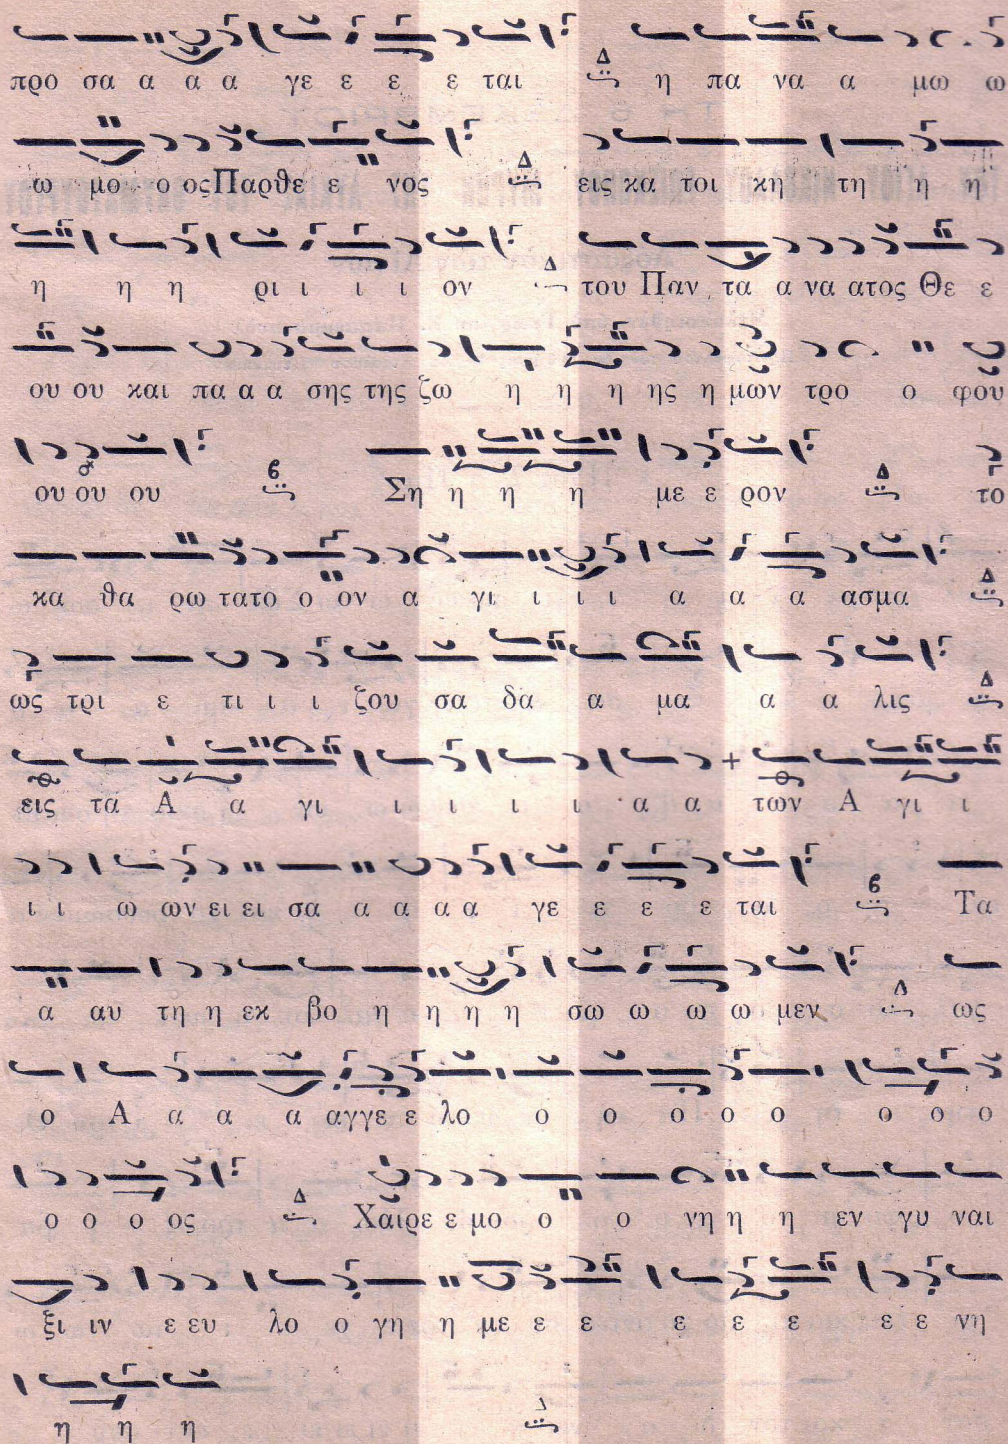 προ σα α α α γε ε ε ε ται Δ η πα να α μω ω
ω μο ο ος Παρθε ε νος Δ εις κα τοι κη τη η η
η η η ρι ι ι ι ον Δ του Παν τα α να ατος Θε ε
ου ου και πα α α σης της ζω η η η ης η μών τρο ο φού
ου ου ου β Ση η η η με ε ρον Δ το
κα θα ρω τατο ο ον α γι ι ι ι α α α ασμα Δ
ως τρι ε τι ι ι ζου σα δα α μα α α λις Δ
εις τα Α α γι ι ι ι ι α α των Α γι ι
ι ι ω ων ει ει σα α α α α γε ε ε ε ται β Τα
α αυ τη η εκ βο η η η η σω ω ω ω μεν Δ ως
ο Α α α α αγγε ε λο ο ο ο ο ο ο ο ο
ο ο ο ος Δ Χαίρε ε μο ο ο νη η η εν γυ ναι
ξι ιν ε ευ λο ο γη η με ε ε ε ε ε ε ε νη
η η η